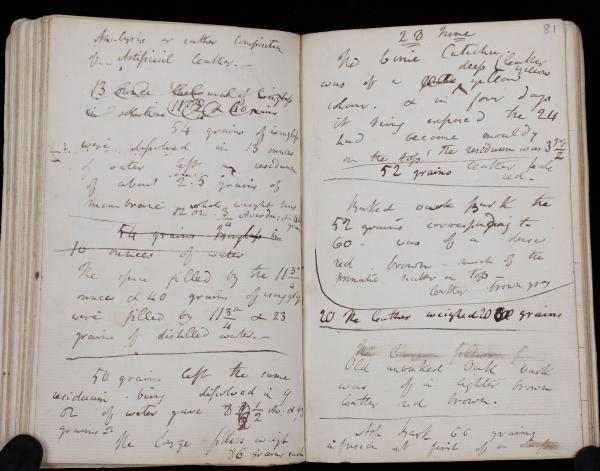 Analysis or rather Composition
of Artificial Leather. —
13 ounces
in solution 11 3/4 & 40 grains
54 grains of isinglass
were dissolved in 13 ounces
of water left a residuum
of about 2.5 grains of
membrane
whole weight being
12 oz. 3/4 Averdu.
54 grains Isinglass in
10 ounces of water
The space filled by the 11 3/4
ounces & 40 grains of isinglass
were filled by 11 3/4 & 23
grains of distilled water. —
50 grains left the same
residuum. being dissolved in 9
oz of water gave 8 1/2
grains
The large filters weigh
86 grains each
81
28 June
The Einie Catechu
was of a deep yellow
leather yellow
colour. & in four days
it being exposed the 24
had become mouldy
on the top! the residuum was 3 1/2
52 grains leather pale
red.
Baked oak Bark the
52 grains corresponding to
60. was of a dense
red brown — much of the
aromatic matter on top —
leather brown gray
20 The leather weighed 20 grains
Old unbaked Oak bark
was of a lighter brown
leather red brown.
Ash Bark 66 grains
infusion at first of a